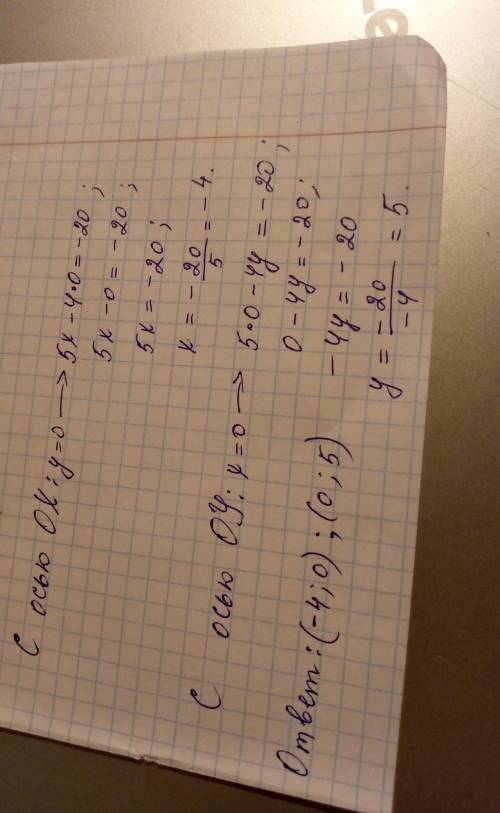 С осью OX: y=0 → 5x - 4·0 = -20;
5x - 0 = -20;
5x = -20;
x = -20/5 = -4.
С осью OY: x=0 → 5·0 - 4y = -20;
0 - 4y = -20;
-4y = -20
y = -20/-4 = 5.
Ответ: (-4; 0); (0; 5)